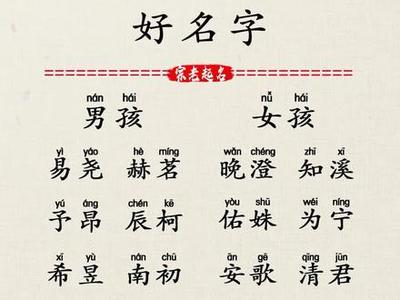 好名字
宋老起名
nán hái nǚ hái
男孩 女孩
yì yáo hè míng wǎn chéng zhī xī
易尧 赫茗 晚澄 知溪
yú áng chén kē yòu shū wéi níng
予昂 辰柯 佑姝 为宁
xī yù nán chū ān gē qīng jūn
希昱 南初 安歌 清君